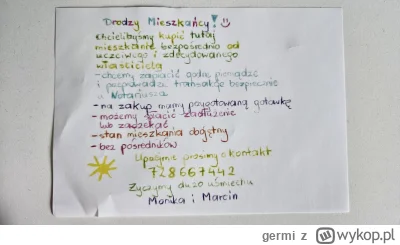 Drodzy Mieszkańcy! ☺
Chcielibyśmy kupić tutaj
mieszkanie bezpośrednio od
uczciwego i zdecydowanego
właściciela
- chcemy zapłacić godne pieniądze
i przeprowadzić transakcję bezpiecznie
u Notariusza
- na zakup mamy przygotowaną gotówkę
- możemy spłacić zadłużenie
lub zaczekać
- stan mieszkania obojętny
- bez pośredników
Uprzejmie prosimy o kontakt
728667442
Życzymy dużo uśmiechu
Monika i Marcin
germi z wykop.pl